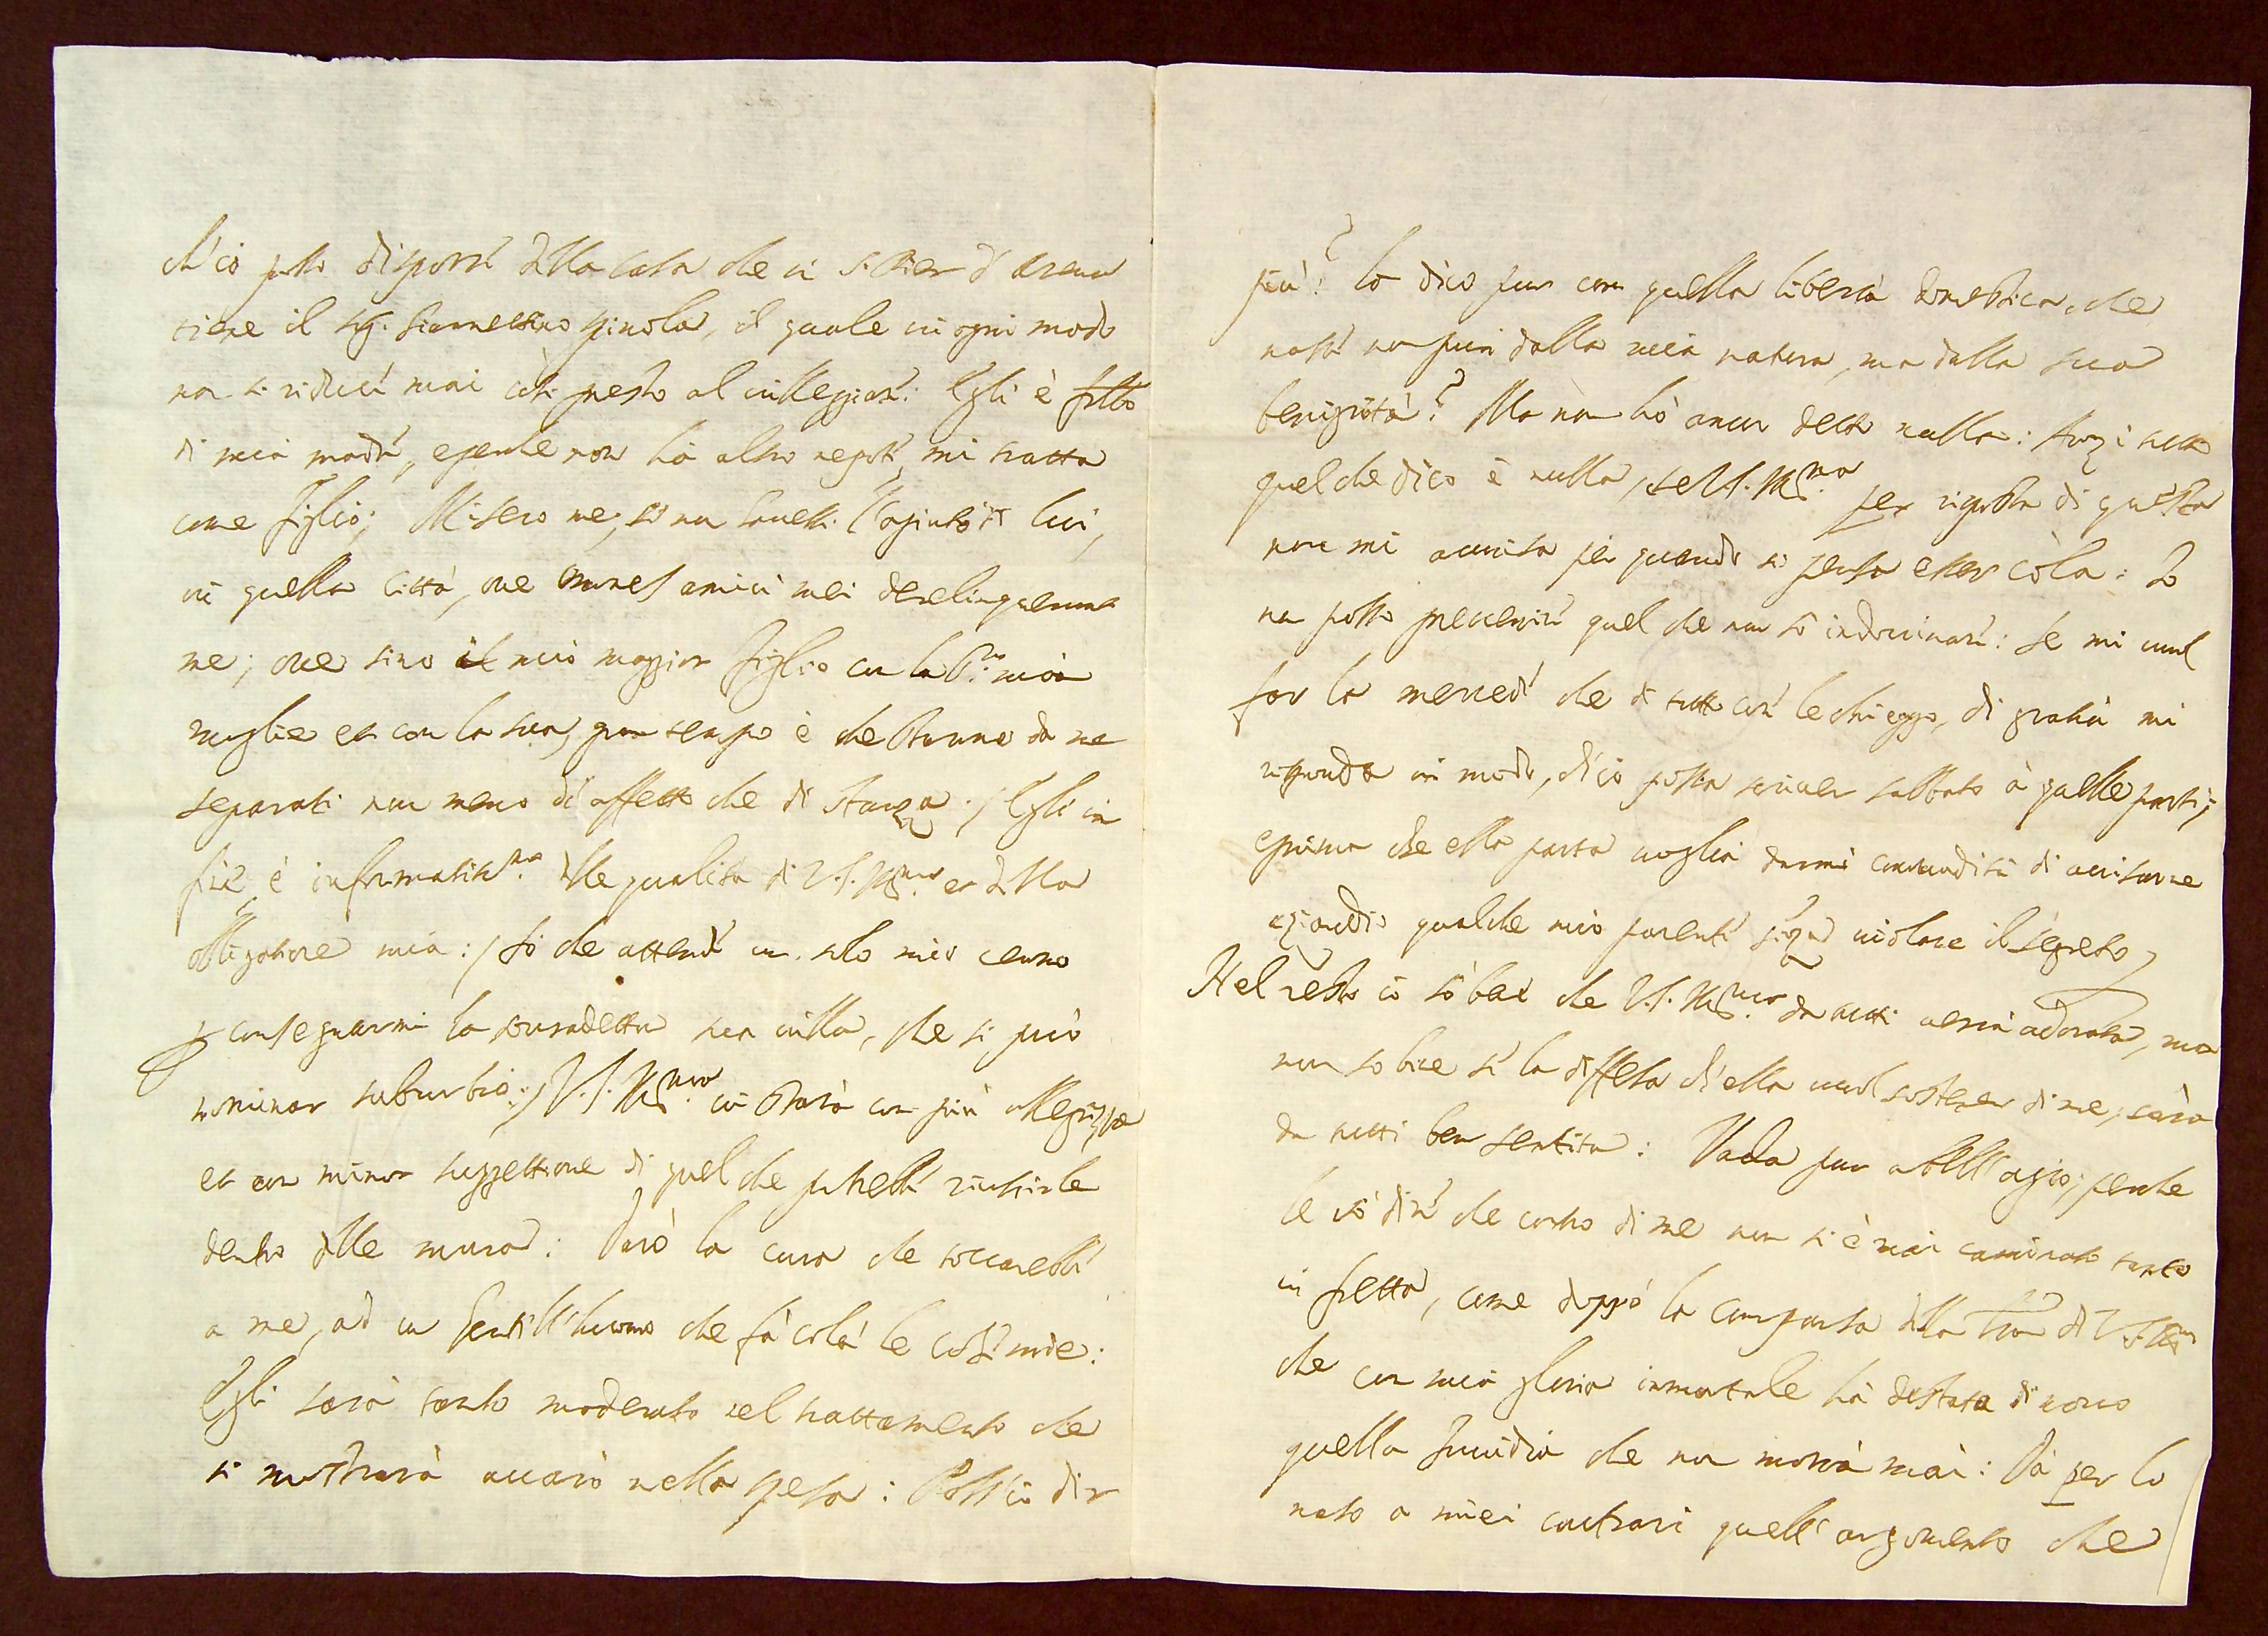 ch'io posso disporre della casa che in S. Pier d'arena
tiene il Sig. Giannettino Spinola, il quale in ogni modo
non si riduce mai così presto al villeggiare: Egli è fr̃llo
di mia madre, e perche non hà altro nepote, mi tratta
come figlio; Misero me, se non havessi l'agiuto di lui,
in quella Città, ove omnes amici mei dereliquerunt
me; ove sino il mio maggior figlio con la Sig.ra mia
moglie et con la sua, gran tempo è che stanno da me
separati non meno di affetto che di stanza./ Egli in
fine è informatiss.mo delle qualità di V.S. Ill.ma et della
obligatione mia:/ sò che attende un solo mio cenno
p consegnarmi la sovradetta sua villa, che si può
nominar suburbio:/ V.S. Ill.ma vi starà con più allegrezza
et con minor suggettione di quel che potrebbe riuscirle
dentro delle mura: Darò la cura che toccarebbe
a me, ad un Gentil'huomo che fà colà le cose mie:
Egli sarà tanto moderato nel trattamento che
si mostrarà avaro nella spesa: Poss'io dir
più? lo dico pur con quella libertà domestica, che
nasce non pur dalla mia natura, ma dalla sua
benignità? Ma non hò ancor detto nulla: Anzi tutto
quel che dico è nulla, se V.S. Ill.ma per risposta di questa
non mi avvisa per quando si pensa esser colà: Io
non posso prevenire quel che non sò indovinare: Se mi vuol
far la mercede che di tutto cuore le chieggo, di gratia mi
risponda in modo, ch'io possa scriver sabbato à quelle parti;
e prima che ella parta voglia darmi commodità di avisarne
eziandio qualche mio parente senza violare il segreto,
Nel resto io sò ben che V.S. Ill.ma da tutti verrà adorata, ma
non so bene se la diffesa ch'ella vuol sostener di me, sarà
da tutti ben sentita: Vada pur a bell'agio; perche
le sò dire che contro di me non si è mai caminato tanto
in fretta, come doppò la comparsa della Tra di V.S. Ill.ma
che con mia gloria immortale hà destata di novo
quella Invidia che non morrà mai: Dà per lo
naso a miei contrari quell'argomento che